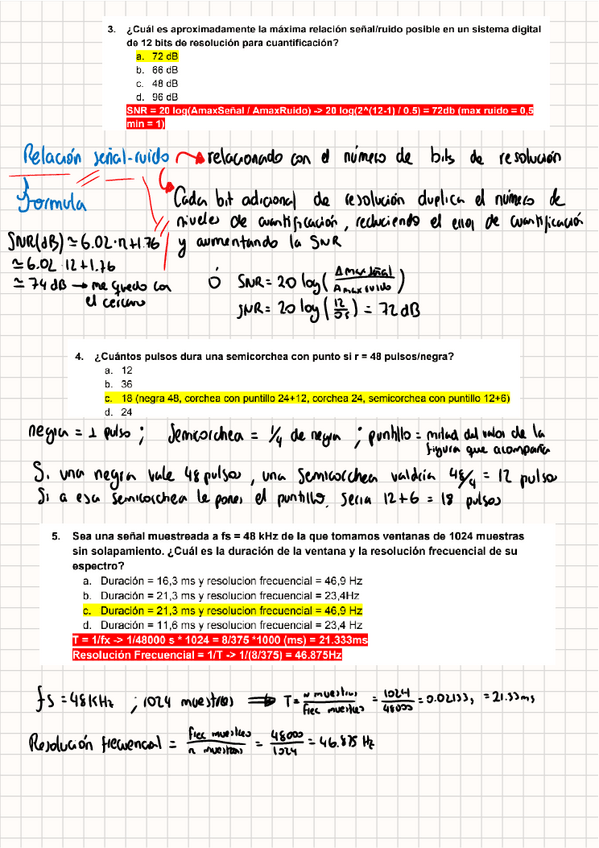 3. ¿Cuál es aproximadamente la máxima relación señal/ruido posible en un sistema digital
de 12 bits de resolución para cuantificación?
a. 72 dB
b. 66 dB
c. 48 dB
d. 96 dB
SNR = 20 log(AmaxSeñal / AmaxRuido) -> 20 log(2^(12-1) / 0.5) = 72db (max ruido = 0,5
min = 1)
Relación señal-ruido → relacionado con el número de bits de resolución
Formula
Cada bit adicional de resolución duplica el número de
niveles de cuantificación, reduciendo el error de cuantificación
y aumentando la SNR
SNR(dB) ≃ 6.02·n+1.76
≃ 6.02·12+1.76
≃ 74 dB → me quedo con
el cercano
Ó SNR = 20 log(Amax señal / Amax ruido)
SNR = 20 log(12/0s) = 72 dB
4. ¿Cuántos pulsos dura una semicorchea con punto si r = 48 pulsos/negra?
a. 12
b. 36
c. 18 (negra 48, corchea con puntillo 24+12, corchea 24, semicorchea con puntillo 12+6)
d. 24
negra = 1 pulso ; Semicorchea = 1/4 de negra ; puntillo = mitad del valor de la
figura que acompaña
Si una negra vale 48 pulsos, una semicorchea valdría 48/4 = 12 pulsos
Si a esa semicorchea le pones el puntillo, seria 12+6 = 18 pulsos
5. Sea una señal muestreada a fs = 48 kHz de la que tomamos ventanas de 1024 muestras
sin solapamiento. ¿Cuál es la duración de la ventana y la resolución frecuencial de su
espectro?
a. Duración = 16,3 ms y resolucion frecuencial = 46,9 Hz
b. Duración = 21,3 ms y resolucion frecuencial = 23,4Hz
c. Duración = 21,3 ms y resolucion frecuencial = 46,9 Hz
d. Duración = 11,6 ms y resolucion frecuencial = 23,4 Hz
T = 1/fx -> 1/48000 s * 1024 = 8/375 *1000 (ms) = 21.333ms
Resolución Frecuencial = 1/T -> 1/(8/375) = 46.875Hz
fs = 48 KHz ; 1024 muestras ⟹ T = n muestras / frec muestreo = 1024/48000 = 0.02133s = 21.33ms
Resolución frecuencial = frec muestreo / n muestras = 48000/1024 = 46.875 Hz